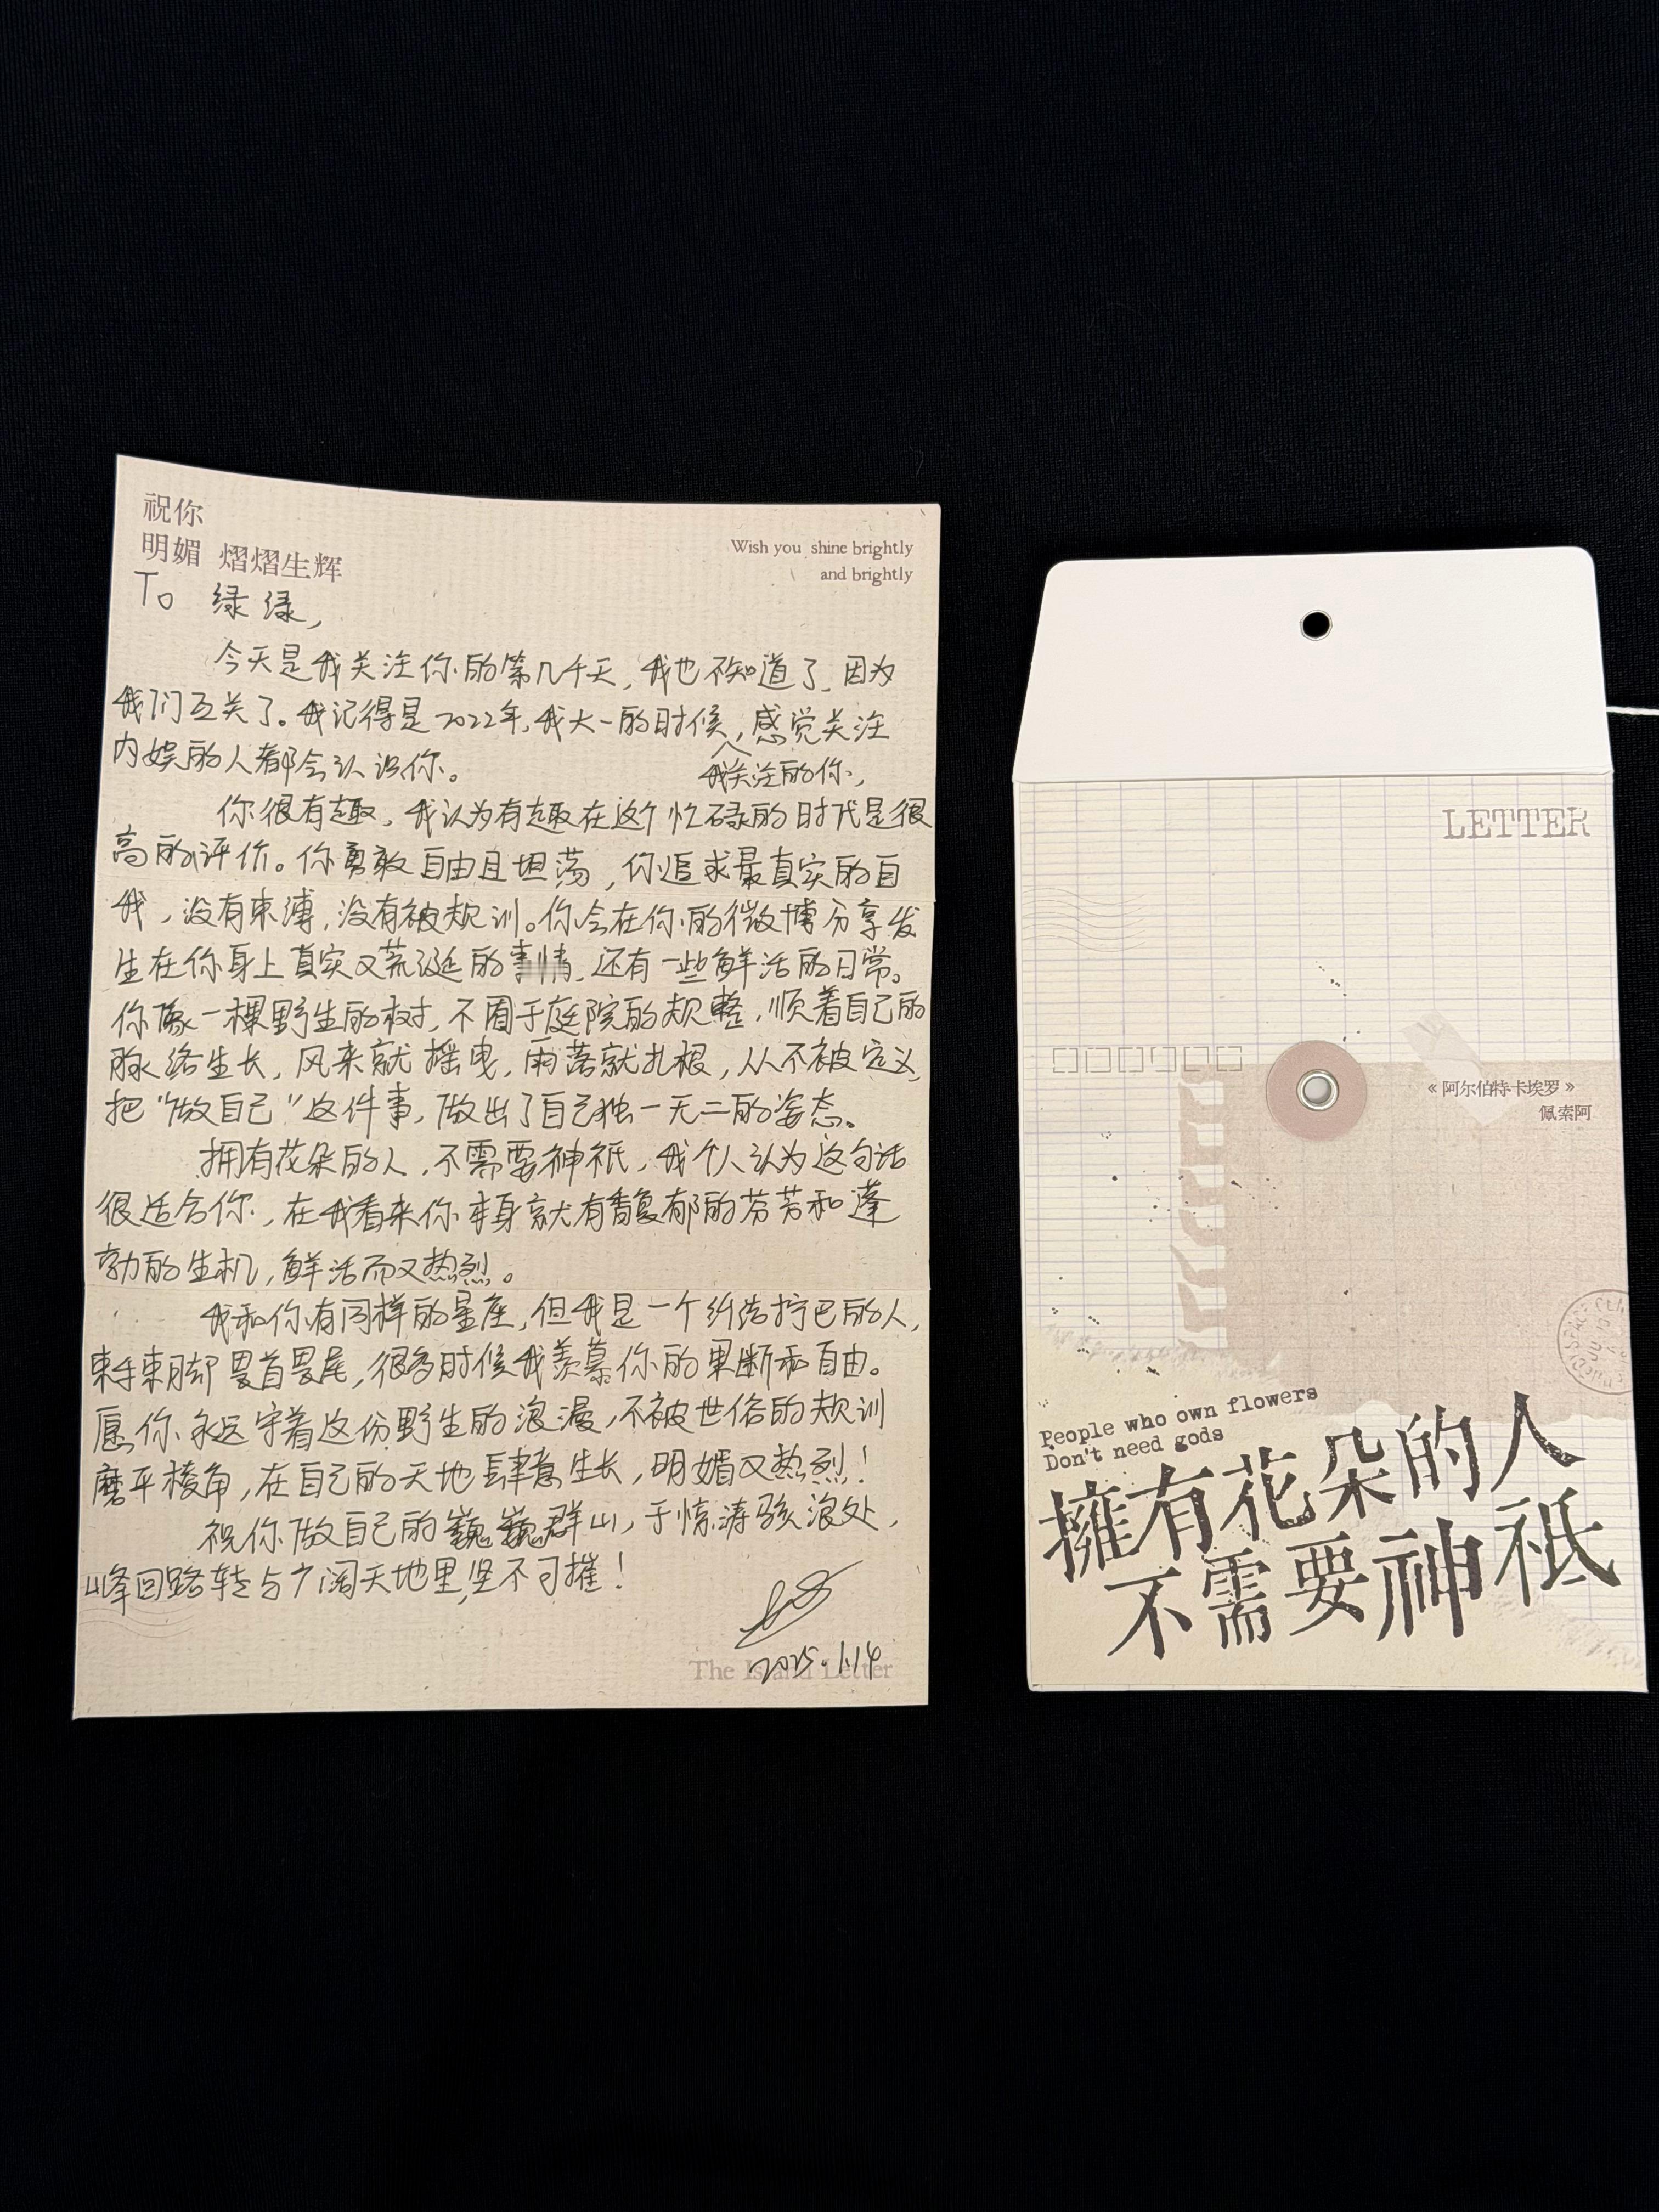 祝你
明媚 熠熠生辉
Wish you shine brightly
and brightly
To 绿绿,
今天是我关注你的第几千天,我也不知道了,因为
我们互关了。我记得是2022年,我大一的时候,感觉关注
我关注的你,
内娱的人都会认识你。
你很有趣,我认为有趣在这个忙碌的时代是很
高的评价。你勇敢自由且坦荡,你追求最真实的自
我,没有束缚,没有被规训。你会在你的微博分享发
生在你身上真实又荒诞的事情,还有一些鲜活的日常。
你像一棵野生的树,不囿于庭院的规整,顺着自己的
脉络生长,风来就摇曳,雨落就扎根,从不被定义,
把“做自己”这件事,做出了自己独一无二的姿态。
拥有花朵的人,不需要神祇,我个人认为这句话
很适合你,在我看来你本身就有馥郁的芬芳和蓬
勃的生机,鲜活而又热烈。
我和你有同样的星座,但我是一个纠结拧巴的人,
束手束脚畏首畏尾,很多时候我羡慕你的果断和自由。
愿你永远守着这份野生的浪漫,不被世俗的规训
磨平棱角,在自己的天地肆意生长,明媚又热烈!
祝你做自己的巍巍群山,于惊涛骇浪处,
峰回路转与广阔天地里,坚不可摧!
2025.1.14
The Island Letter
LETTER
《阿尔伯特卡埃罗》
佩索阿
People who own flowers
Don't need gods
擁有花朵的人
不需要神祇